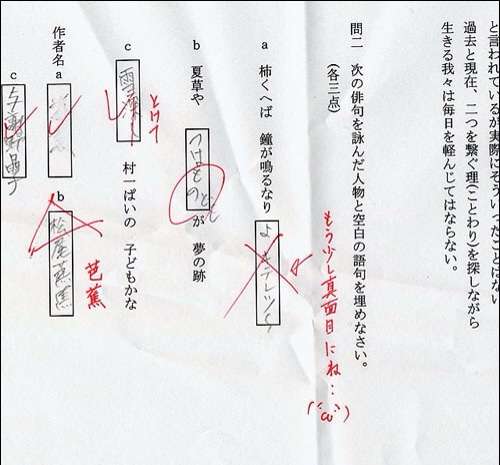 と言われているが実際に
過去と現在、二つを繋ぐ理(ことわり)を探しながら
生きる我々は毎日を軽んじてはならない。
問二 次の俳句を詠んだ人物と空白の語句を埋めなさい。
(各三点)
もう少し真面目にね‥
a 柿くへば 鐘が鳴るなり
b 夏草や つけものども が 夢の跡
とけて
c 雪 村一ぱいの 子どもかな
芭蕉
作者名 a b 松尾
c 与謝野晶子